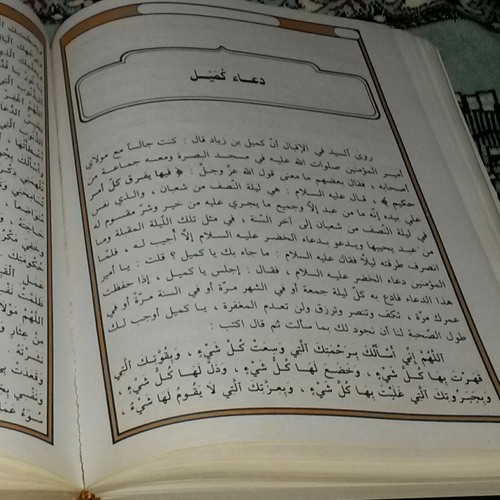 دعاء كُمَيْل
روى السيد في الإقبال أنّ كميل بن زياد قال : كنت جالسا مع مولاي
أمير المؤمنين صلوات الله عليه في مسجد البصرة ومعه جماعة من
أصحابه ، فقال بعضهم ما معنى قول الله عزّ وجلّ : ﴿ فيها يفرق كلّ أمر
حكيم ﴾ قال عليه السلام : هي ليلة النّصف من شعبان ، والذي نفس
علي بيده إنّه ما من عبد إلاّ وجميع ما يجري عليه من خير وشرّ مقسوم له
في ليلة النّصف من شعبان إلى آخر السّنة ، في مثل تلك اللّيلة المقبلة وما
من عبد يحييها ويدعو بدعاء الخضر عليه السلام إلاّ أُجيب له ، فلمّا
انصرف طرقته ليلاً فقال عليه السلام : ما جاء بك يا كميل ؟ قلت : يا أمير
المؤمنين دعاء الخضر عليه السلام ، فقال : إجلس يا كميل ، إذا حفظت
هذا الدعاء فادع به كلّ ليلة جمعة أو في الشهر مرّة أو في السنة مرّة أو في
عمرك مرّة ، تكف وتنصر وترزق ولن تعدم المغفرة ، يا كميل أوجب لك
طول الصّحبة لنا أن نجود لك بما سألت ثم قال اكتب :
اللّهُمَّ إنّي أسْألُكَ بِرَحْمَتِكَ الَّتي وَسِعَتْ كُلَّ شَيْءٍ ، وَبِقُوَّتِكَ الَّتي
قَهَرْتَ بِها كُلَّ شَيْءٍ ، وَخَضَعَ لَها كُلُّ شَيْءٍ ، وَذَلَّ لَها كُلُّ شَيْءٍ ،
وَبِجَبَروتِكَ الَّتي غَلَبْتَ بِها كُلَّ شَيْءٍ ، وَبِعِزَّتِكَ الَّتي لا يَقُومُ لَها شَيْءٌ ،